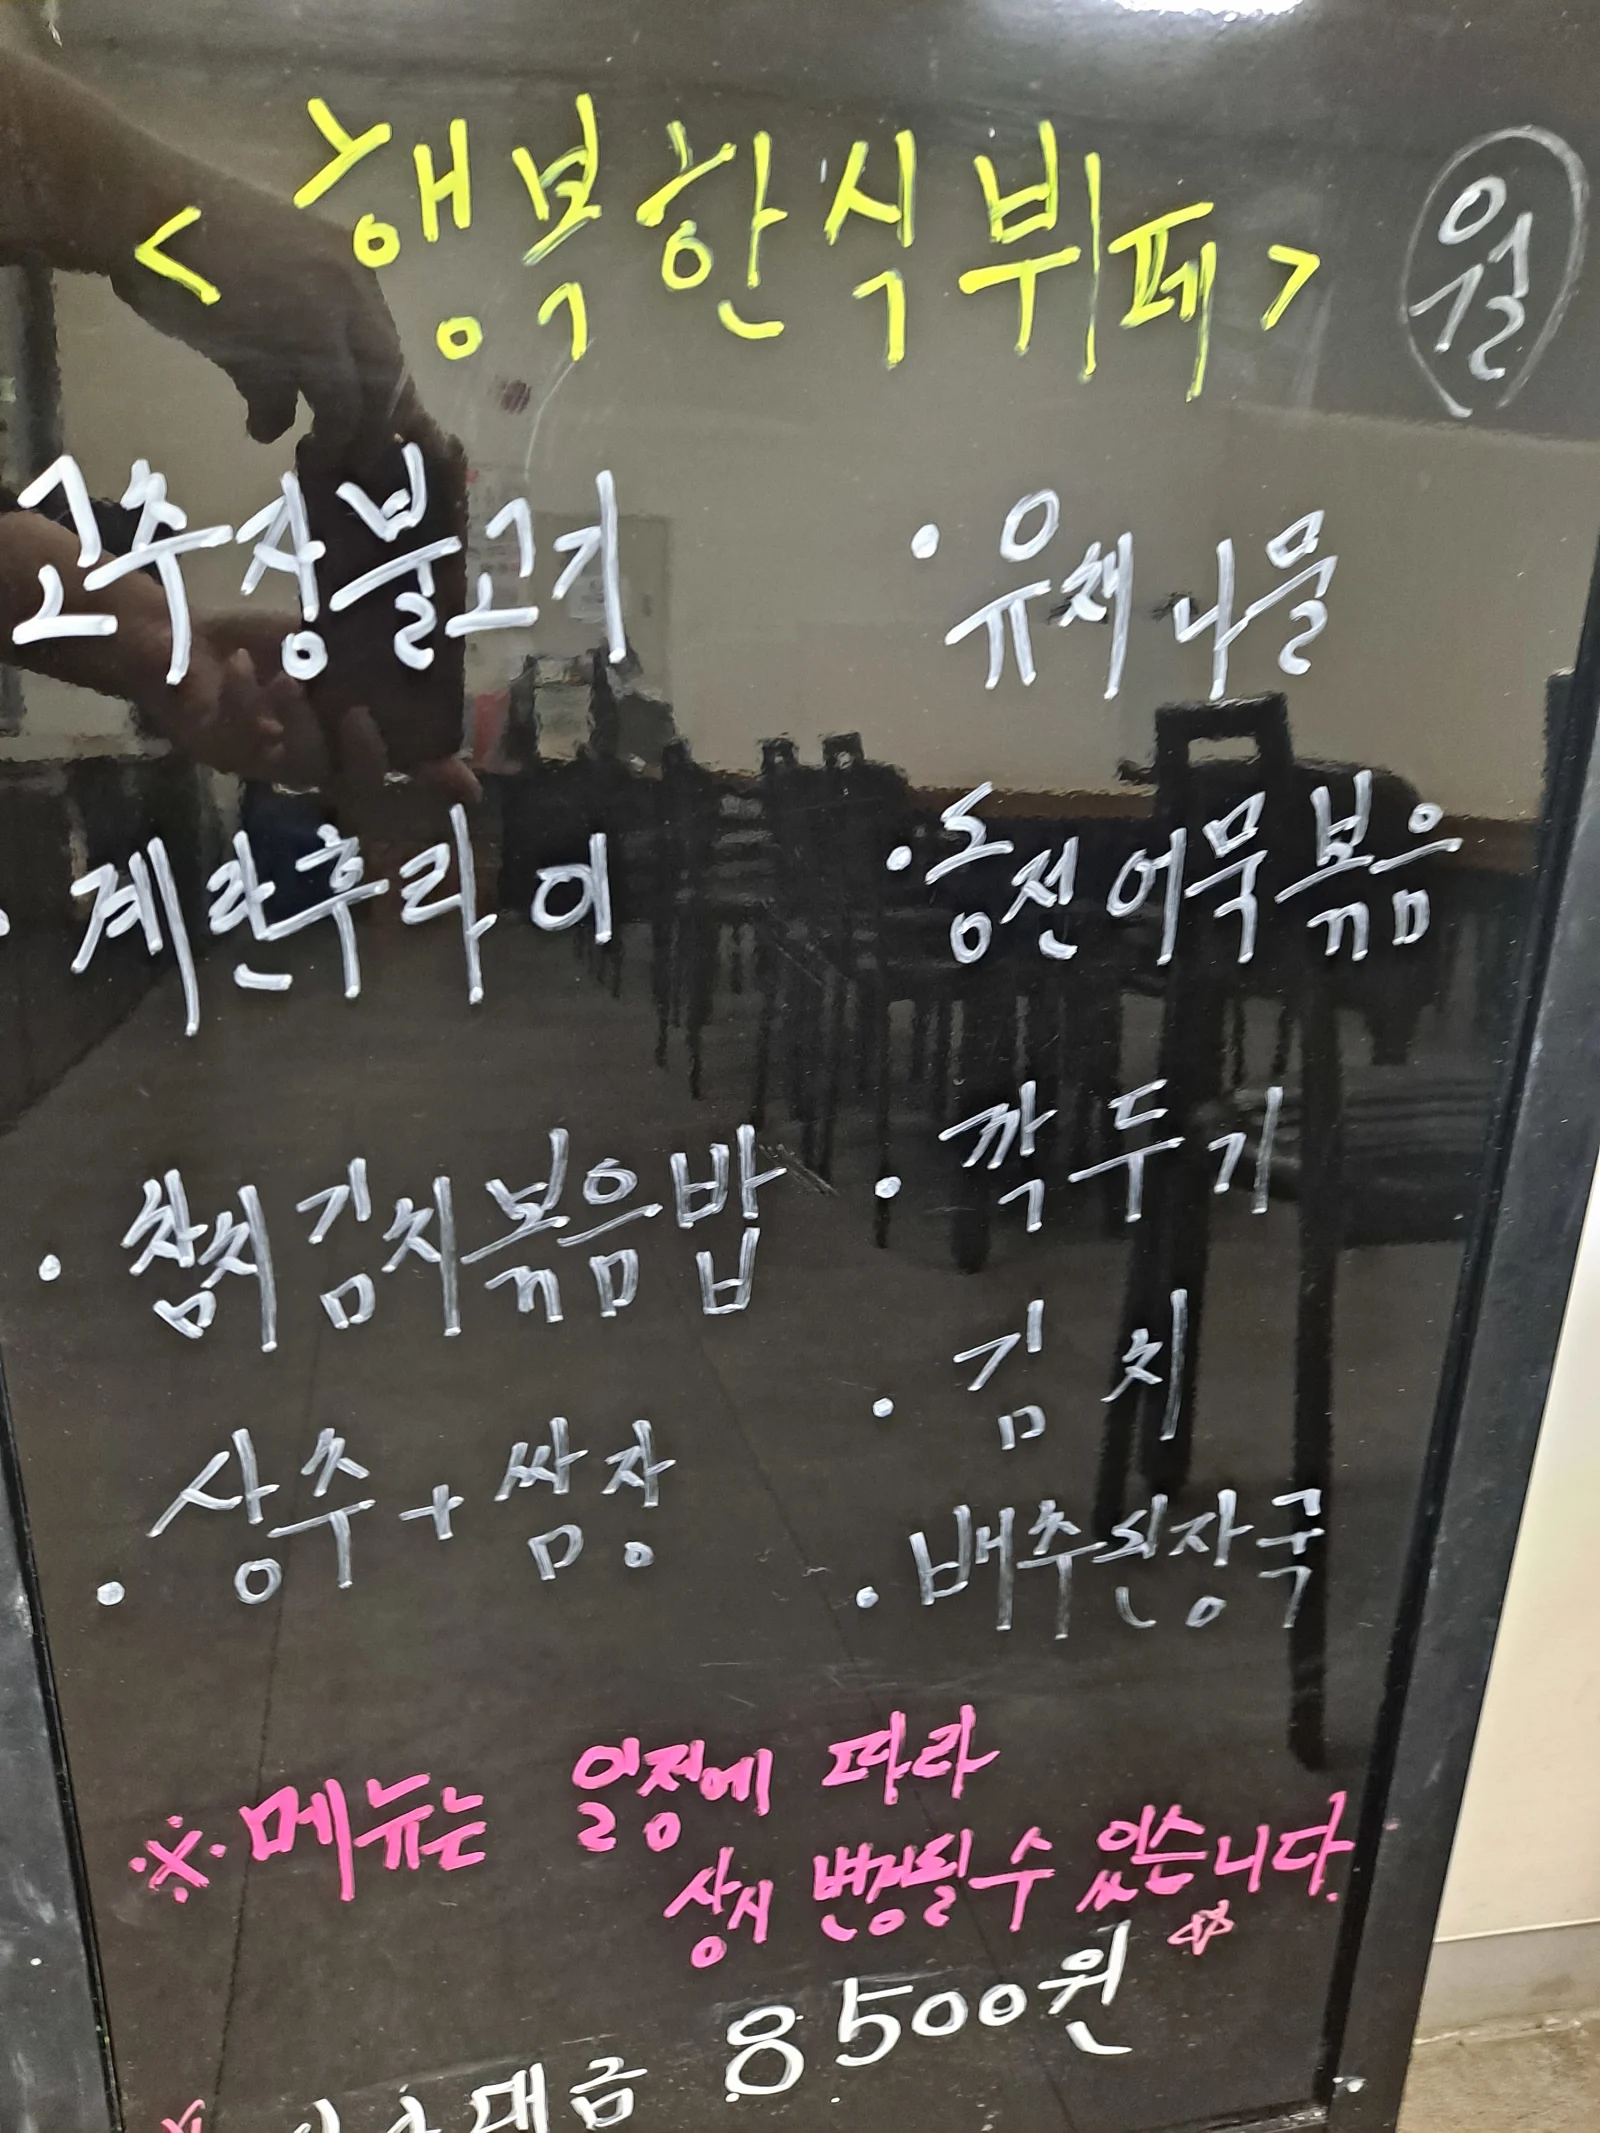 <행복한식뷔페> 월
고추장불고기
· 계란후라이
· 참치김치볶음밥
· 상추+쌈장
· 유채나물
· 동전어묵볶음
· 깍두기
· 김치
· 배추된장국
※ 메뉴는 일정에 따라
상시 변경될 수 있습니다.
대금 8500원